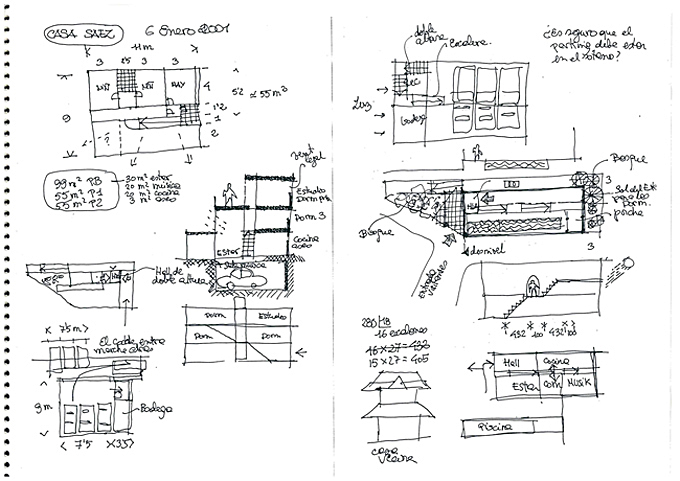 CASA SAEZ
6 Enero 2001
11m
3 2'5 3 3
4
1'2
1
2
9
5'2 ≃ 55 m²
99 m² PB
55 m² P1
55 m² P2
30 m² estar
20 m² musica
20 m² cocina
9 m² aseo
Estudio
Dorm 3
Cocina
aseo
Ester
Hall de
doble altura
Dorm
Estudio
Dorm
Dorm
7'5 m
El coche entra
marcha atras
9 m
Bodega
7'5
3'5
doble
altura
Escalera
¿Es seguro que el
parking debe estar
en el sótano?
Luz
Bosque
3
Sol del Este
para los
Dorm.
porche
3
Bosque
desnivel
280 18
16 escalones
16 x 27 = 432
15 x 27 = 405
432 100 432 100
Hall Cocina
Estar Com Musik
Piscina
casa
vecina